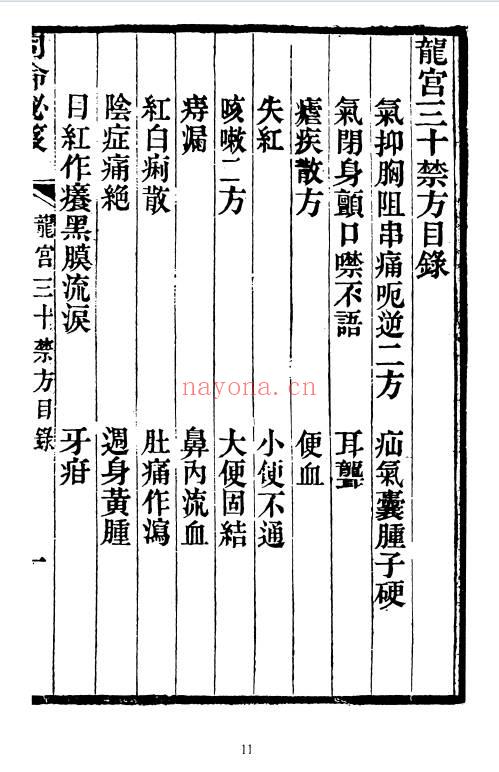 龍宫三十禁方目錄
氣抑胸阻串痛呃逆二方 疝氣囊腫子硬
氣閉身顫口噤不語 耳聾
瘧疾散方 便血
失紅 小便不通
咳嗽二方 大便固結
痔漏 鼻內流血
紅白痢散 肚痛作瀉
陰症痛絕 週身黃腫
目紅作癢黑膜流淚 牙疳
龍宫三十禁方目錄 一
nayona.cn
11